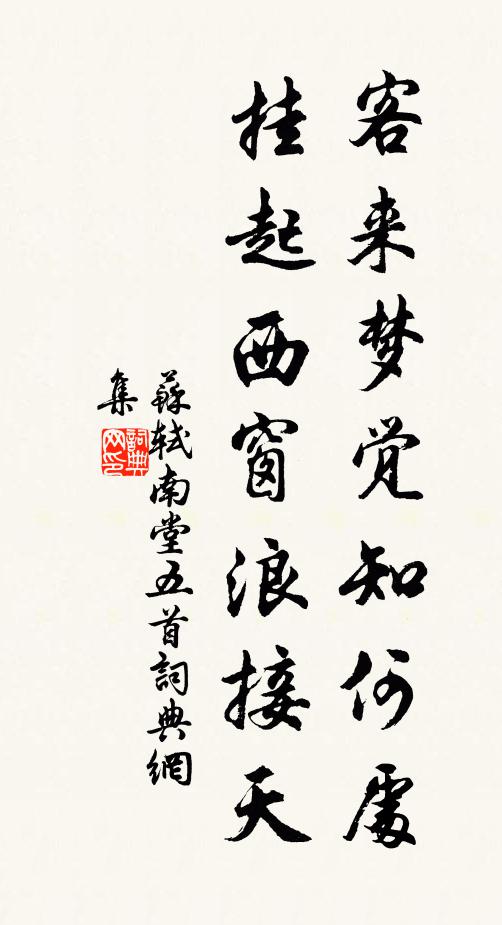 客来梦觉知何處
挂起西窗浪接天
蘇軾南堂五首詞典網
集
詞典网印